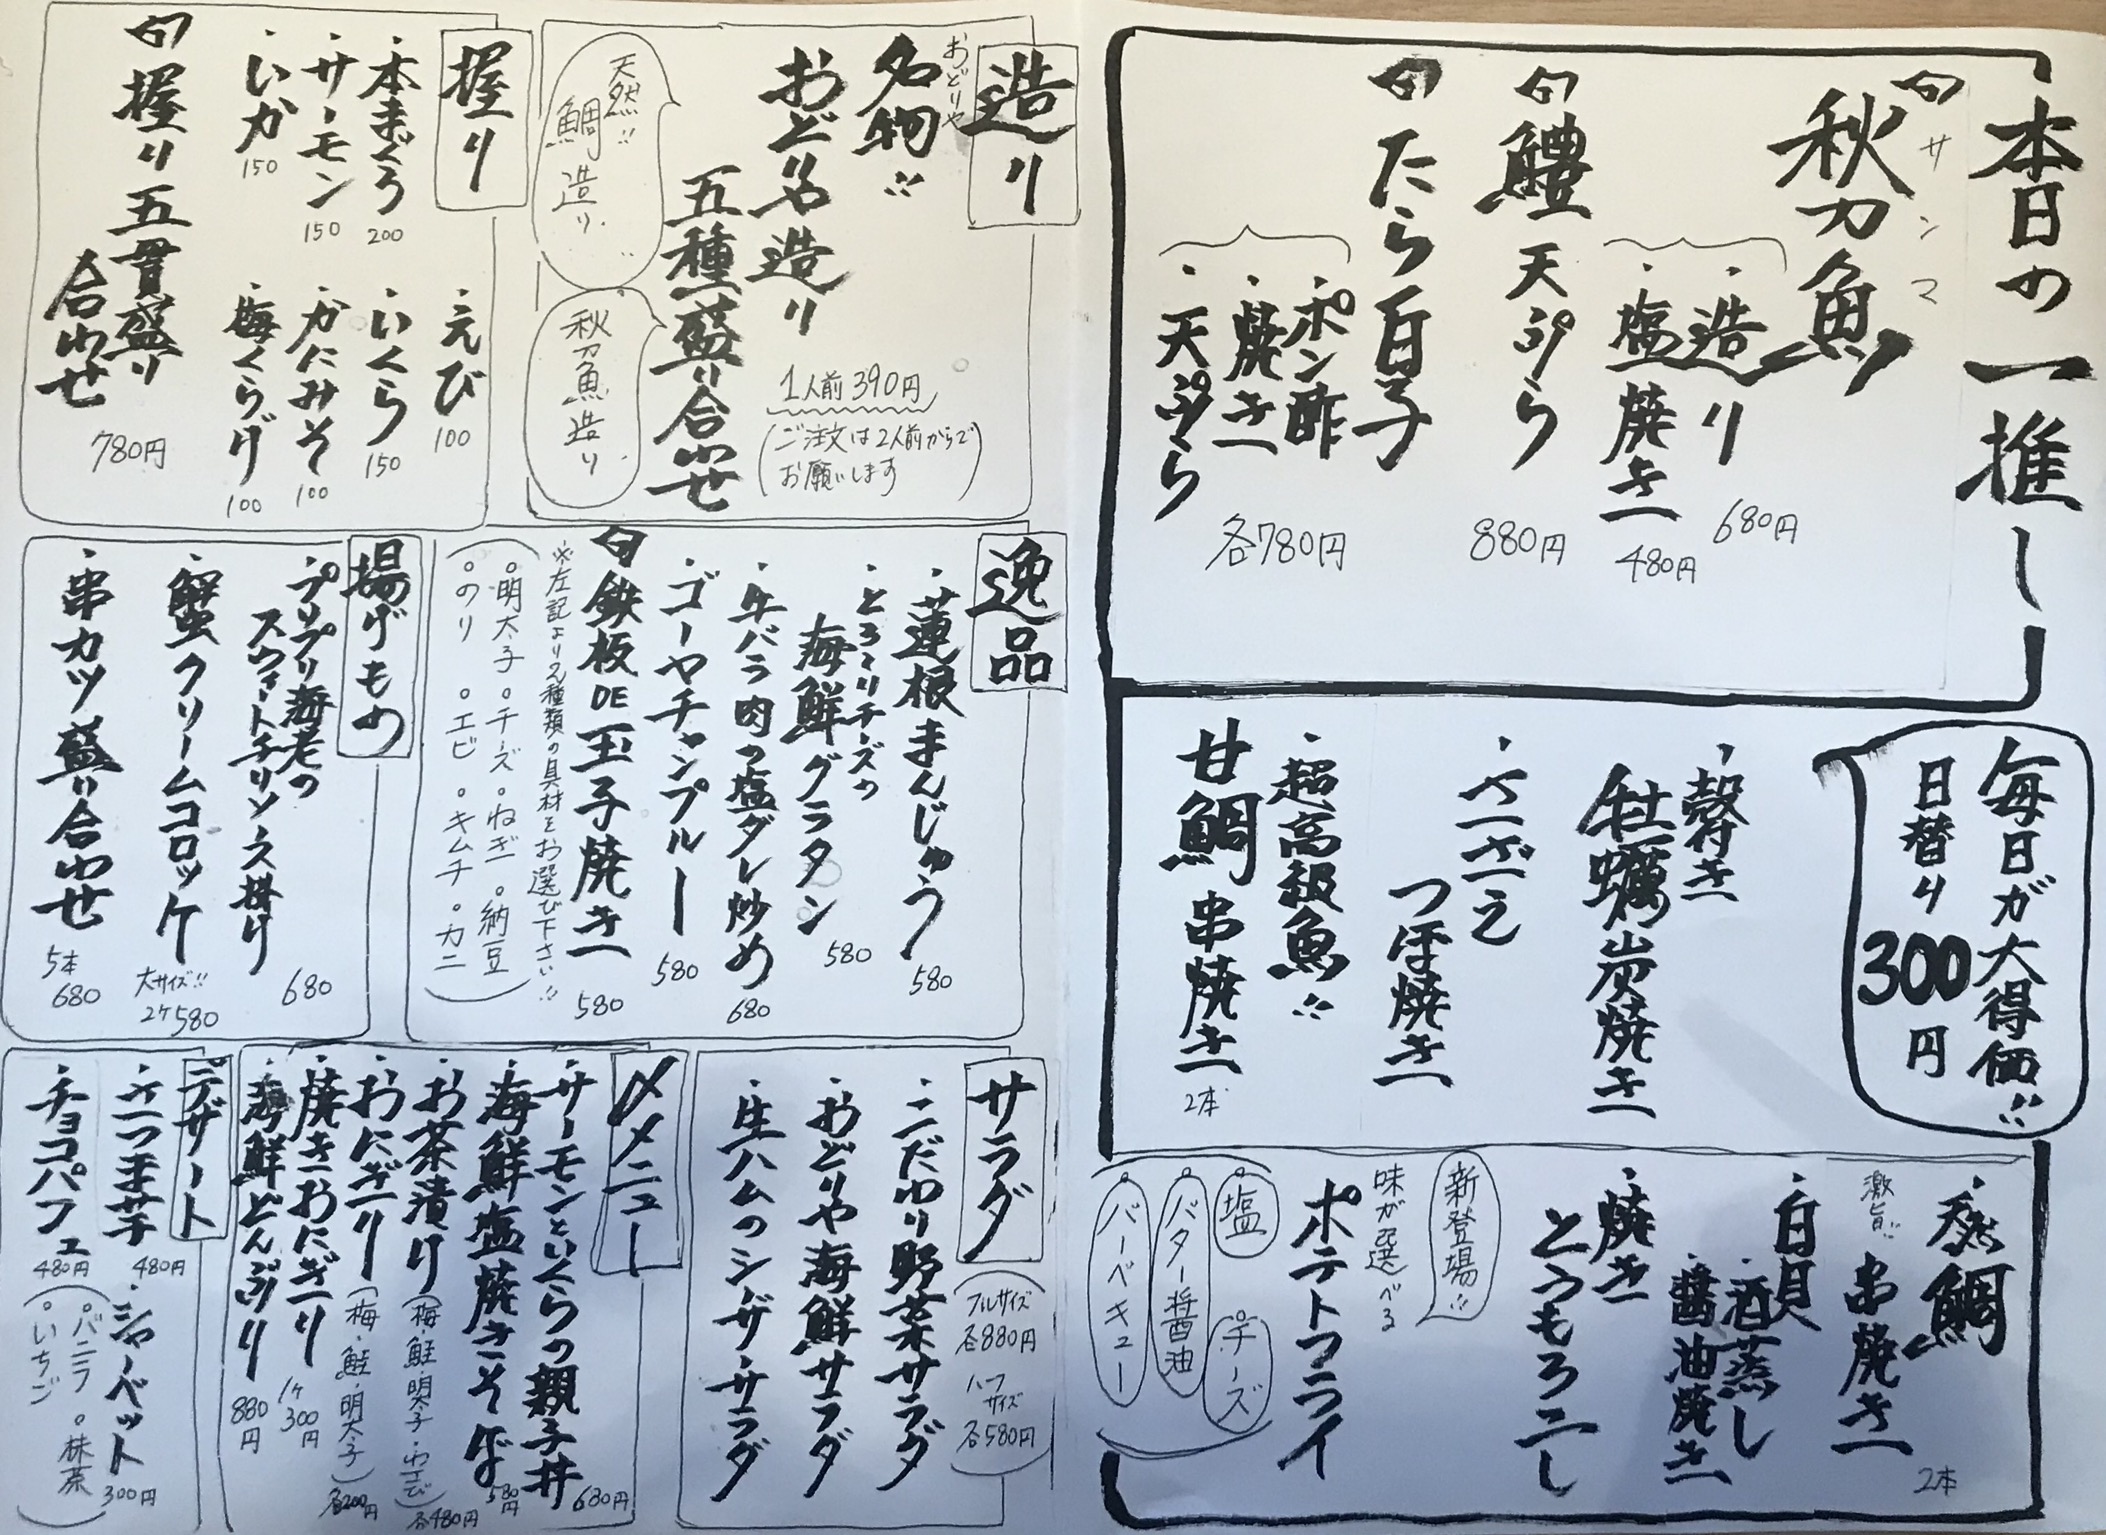 本日の一推し
旬
秋刀魚
サンマ
・造り
680円
・塩焼き
480円
旬
鱧天ぷら
880円
旬
たら白子
・ポン酢
・焼き
・天ぷら
各780円
毎日が大得価!!
日替り
300円
・殻付き
牡蠣炭焼き
・さざえ
つぼ焼き
・超高級魚!!
甘鯛串焼き
2本
・天然鯛
激旨!!
串焼き
2本
・白貝
・酒蒸し
・醤油焼き
・焼き
とうもろこし
新登場!!
味が選べる
ポテトフライ
塩
チーズ
バター醤油
バーベキュー
造り
おどりや
名物!!
おどりや造り
五種盛り合わせ
1人前390円
(ご注文は2人前からで
お願いします)
天然!!
鯛造り
秋刀魚造り
握り
・本まぐろ
200
・サーモン
150
・いか
150
・えび
100
・いくら
150
・かにみそ
100
・梅くらげ
100
旬
握り五貫盛り
合わせ
780円
逸品
・蓮根まんじゅう
580
・とろーりチーズの
海鮮グラタン
580
・牛バラ肉の塩ダレ炒め
680
・ゴーヤチャンプルー
580
旬
鉄板DE玉子焼き
580
※左記より2種類の具材をお選び下さい!!
。明太子。チーズ。ねぎ。納豆
。のり。エビ。キムチ。カニ
揚げもの
・プリプリ海老の
スウィートチリソース掛け
680
・蟹クリームコロッケ
大サイズ!!
2ケ580
・串カツ盛り合わせ
5本
680
サラダ
フルサイズ
各880円
ハーフ
サイズ
各580円
・こだわり野菜サラダ
・おどりや海鮮サラダ
・生ハムのシーザーサラダ
〆メニュー
・サーモンといくらの親子丼
680円
・海鮮塩焼きそば
580円
・お茶漬け(梅・鮭・明太子・わさび)
各480円
・おにぎり(梅・鮭・明太子)
各200円
・焼きおにぎり
1ケ
300円
・海鮮どんぶり
880円
デザート
・さつま芋
480円
・シャーベット
300円
・チョコパフェ
480円
。バニラ。抹茶
。いちご